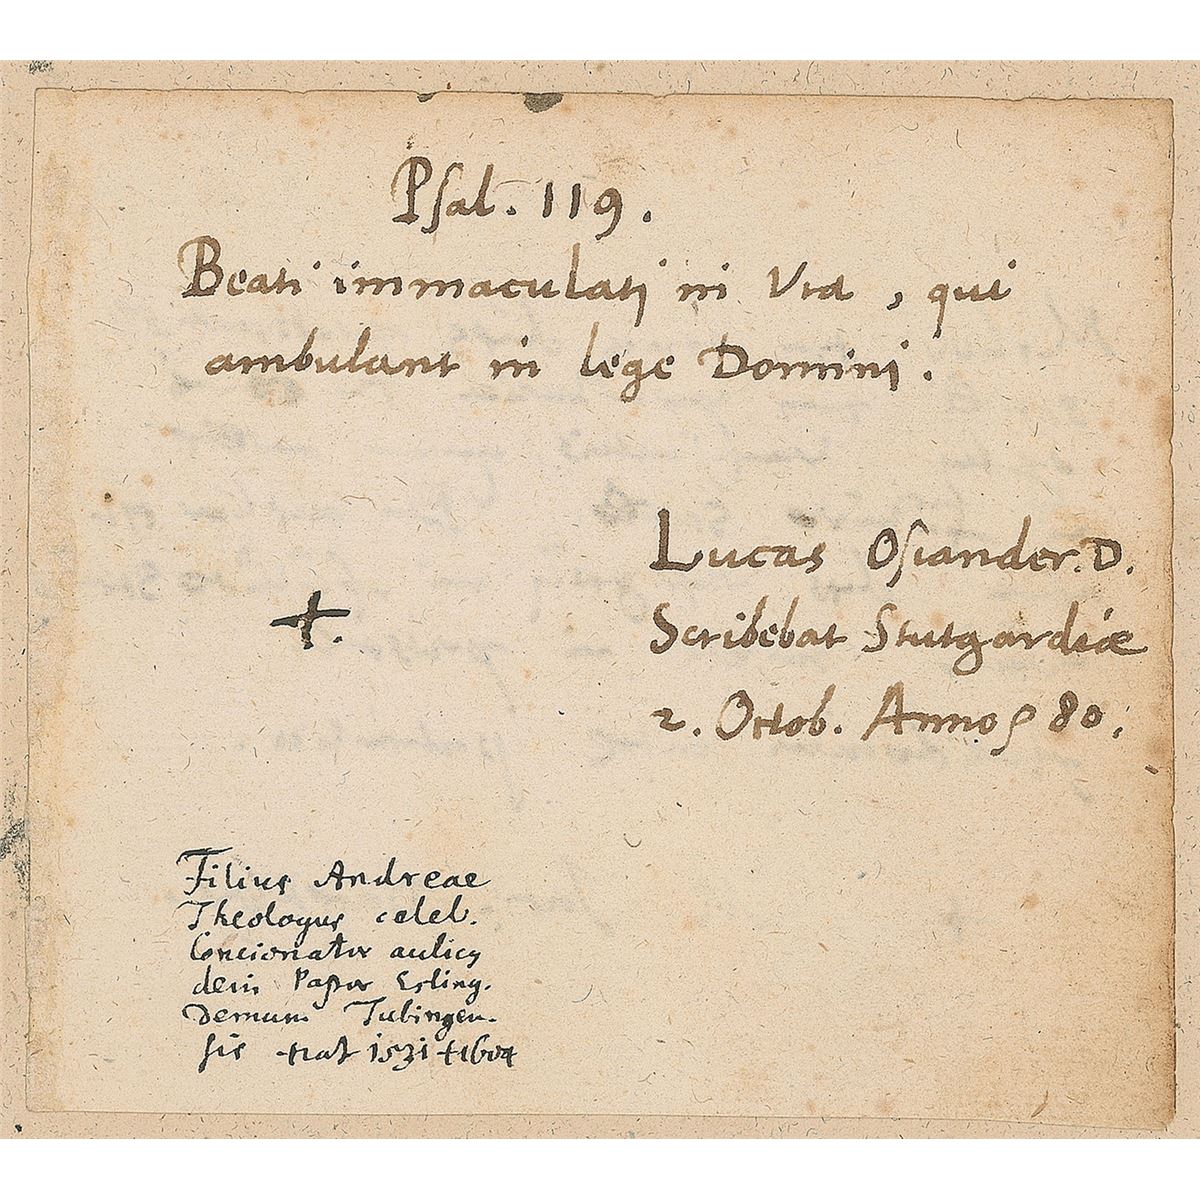 Psal. 119.
Beati immaculatj in via, qui
ambulant in lege Dominj.
Lucas Osiander. D.
Scribebat Stutgardiæ
2. Octob. Anno 80.
+.
Filius Andreae
Theologus celeb.
Concionator aulicus
dein Pastor Esling.
Demum Tubingen-
sis nat 1531 + 1604